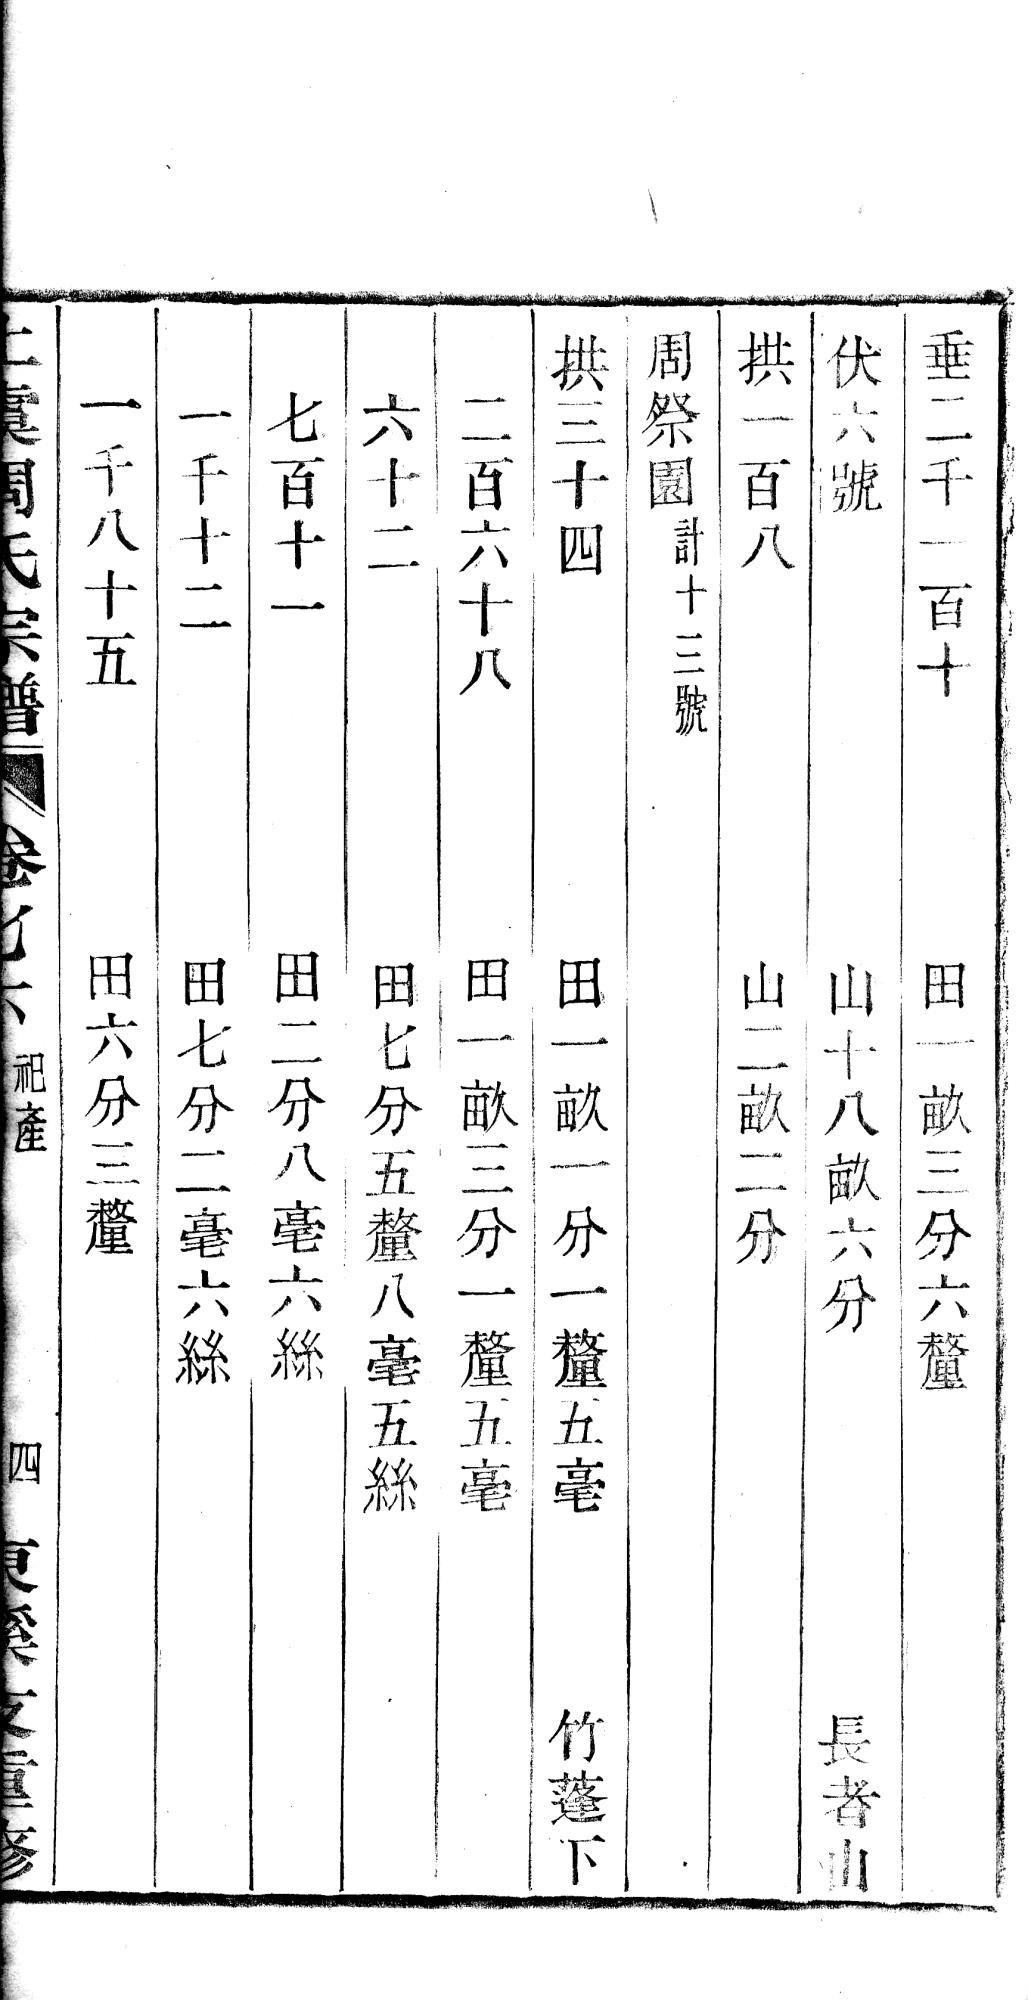 垂二千一百十　田一畝三分六釐
伏六號　山十八畝六分　長者山
拱一百八　山二畝二分
周祭園計十三號
拱三十四　田一畝一分一釐五毫　竹蓬下
二百六十八　田一畝三分一釐五毫
六十二　田七分五釐八毫五絲
七百十一　田二分八毫六絲
一千十二　田七分二毫六絲
一千八十五　田六分三釐
上虞周氏宗譜　卷七六　祀產　四　東溪支重修